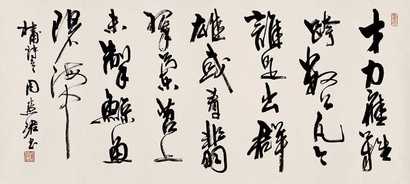 才力應難
跨數公凡今
誰是出群
雄或看翡
翠蘭苕上
未掣鯨魚
碧海中
杜甫詩意 周慧珺書